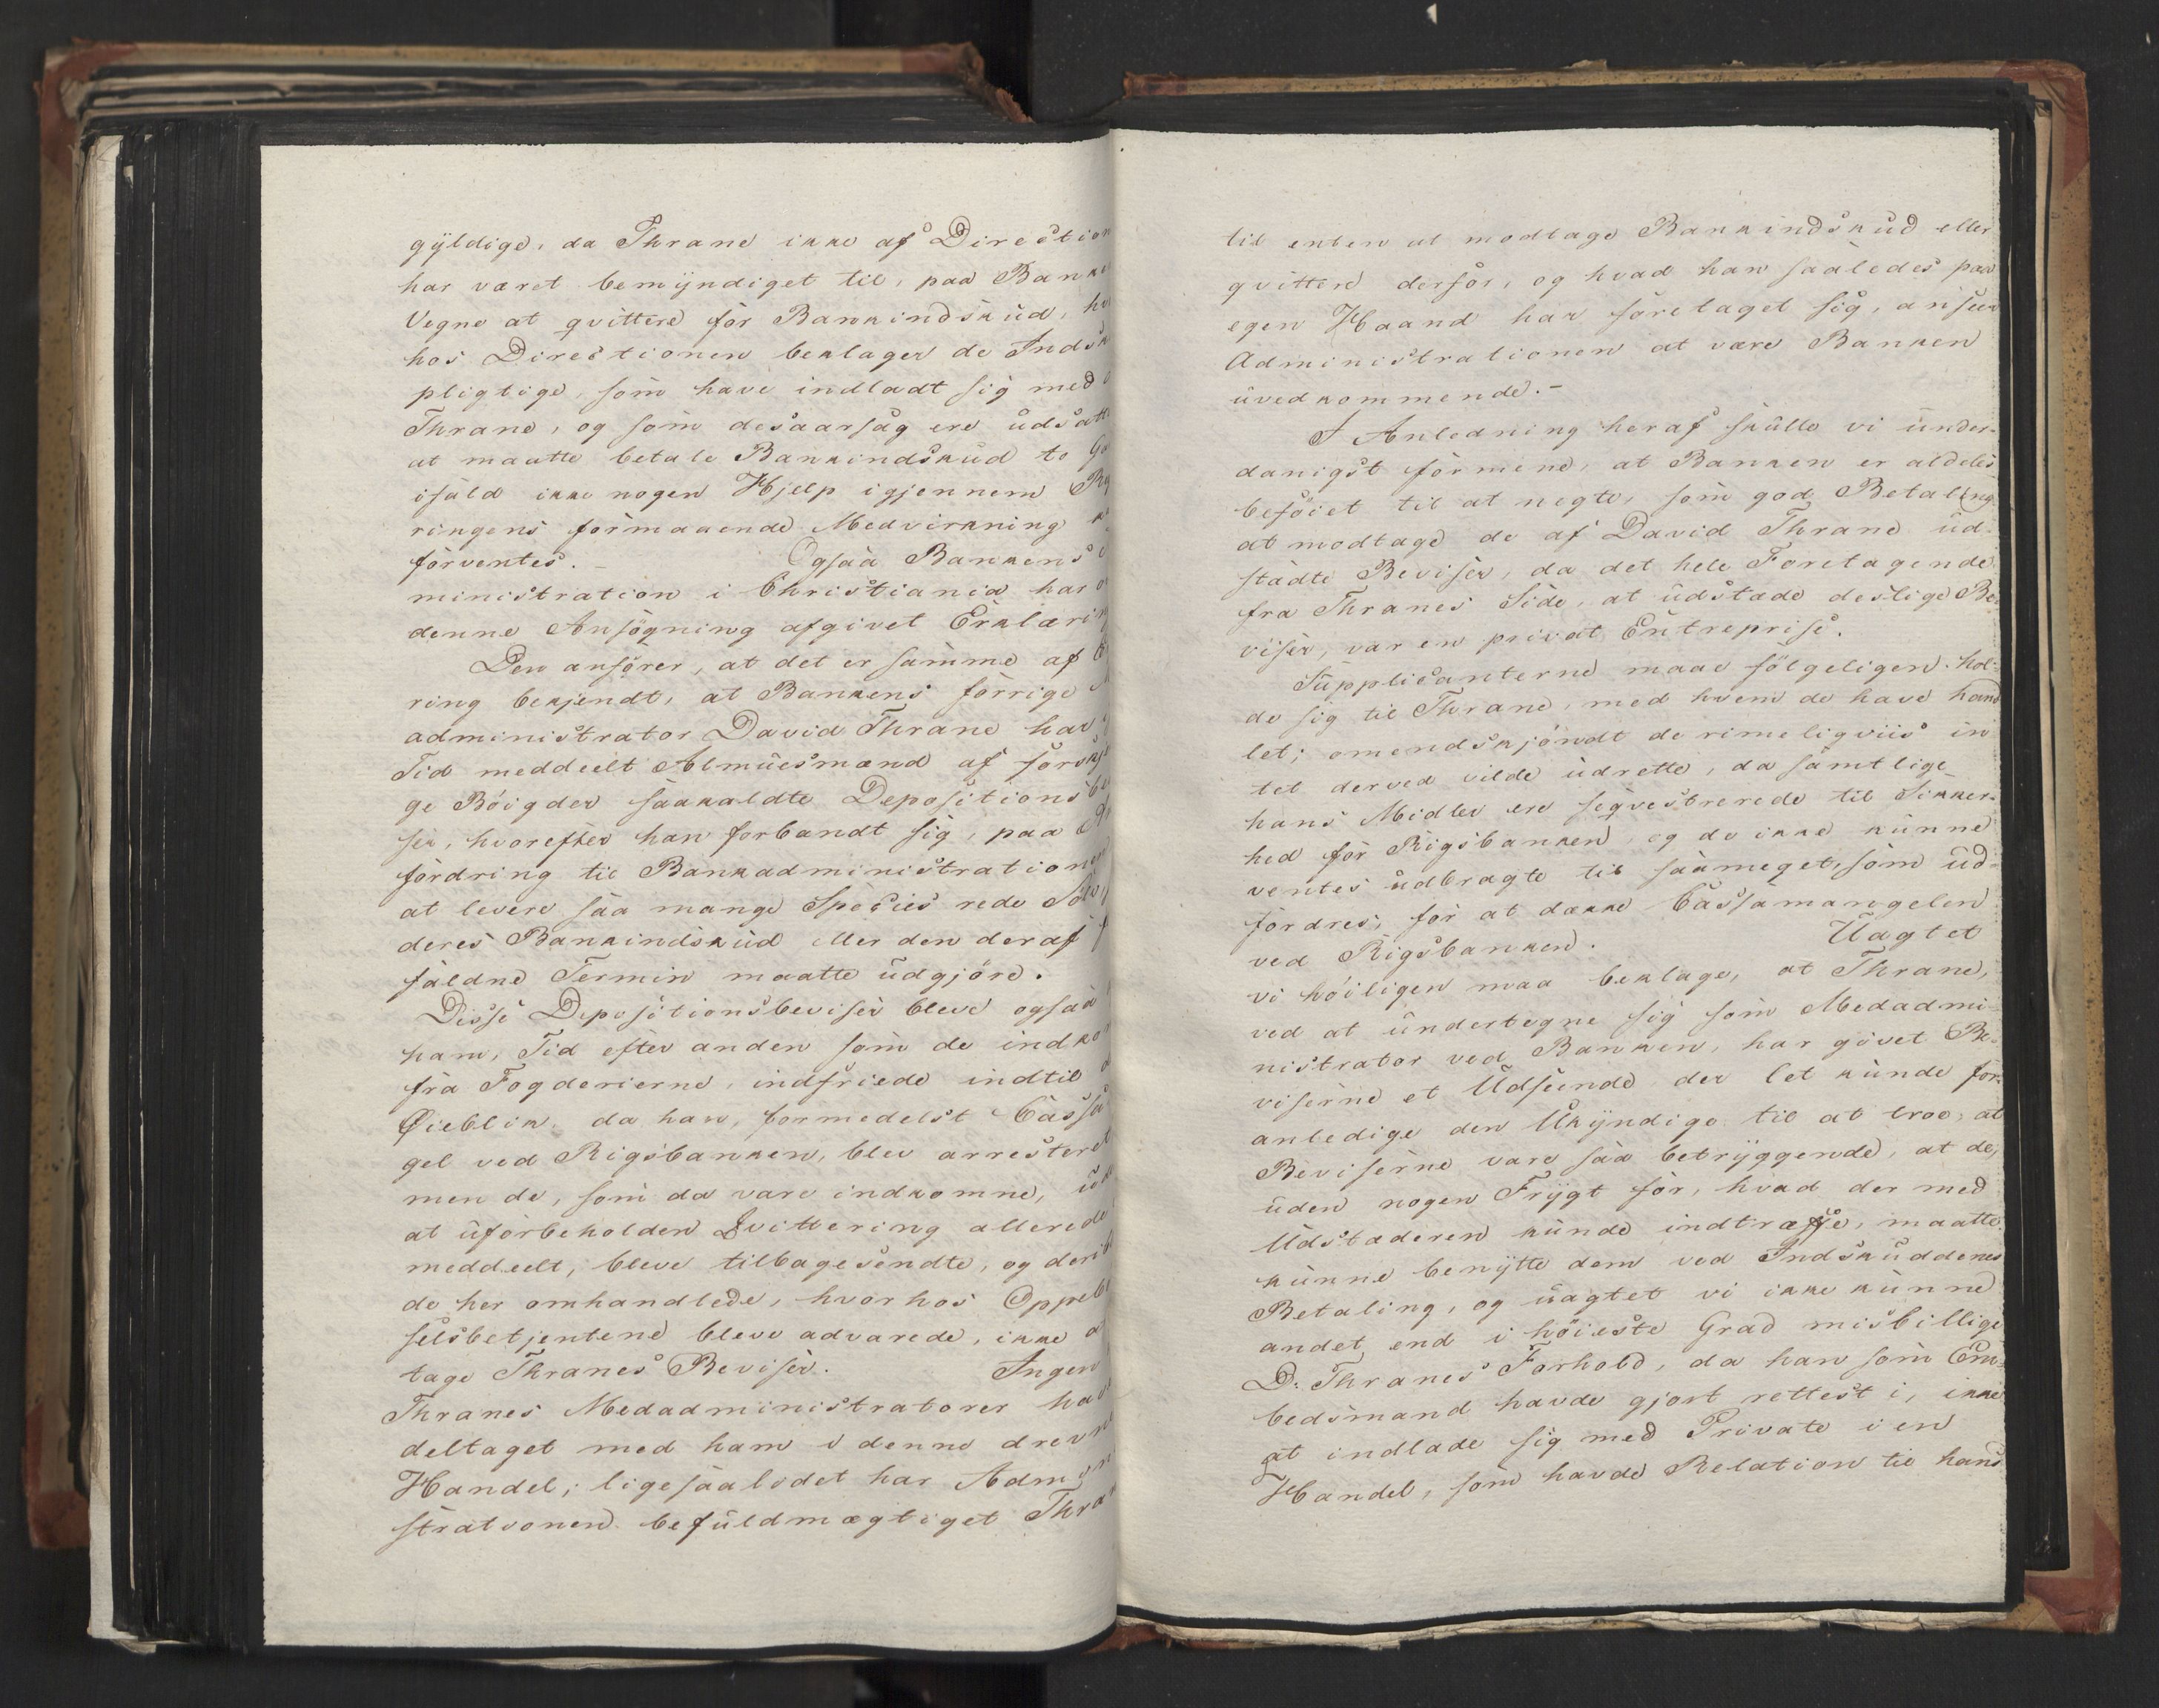 gyldige, da Thrane ikke af Direction
har været bemyndiget til, paa Banke
Vegne at qvittere for Bankindskud, hv
hos Directionen beklager de Indsk
pligtige, som have indladt sig med
Thrane, og som desaarsag ere udsatte
at maatte betale Bankindskud to Ga
ifald ikke nogen Hjelp igjennem Re
ringens formaaende Medvirkning
forventes. – Ogsaa Bankens
ministration i Christiania har
denne Ansøgning afgivet Erklæring
Den anfører, at det er samme af
ring bekjendt, at Bankens forrige
administrator David Thrane har
Tid meddeelt Almuesmænd af forskje
ge Bøigder saakaldte Depositionsbe
ser, hvorefter han forbandt sig, paa
fordring til Bankadministrationen
at levere saa mange Species rede Sølv
deres Bankindskud eller den deraf f
faldne Termin maatte udgjøre.
Disse Depositionsbeviser bleve ogsaa
ham, Tid efter anden som de indkom
fra Fogderierne, indfriede indtil
Øieblik, da han, formedelst Cassa
gel ved Rigsbanken, blev arresteret
men de, som da vare indkomne, u
at uforbeholden Qvittering allerede
meddeelt, bleve tilbagesendte, og derib
de her omhandlede, hvorhos Oppebe
selsbetjentene bleve advarede, ikke
tage Thranes Beviser. Ingen
Thranes Medadministratorer have
deltaget med ham i denne drevne
Handel; ligesaalidet har Admini
strationen befuldmægtiget Thran
til enten at modtage Bankindskud eller
qvittere derfor, og hvad han saaledes paa
egen Haand har foretaget sig, anseer
Administrationen at være Banken
uvedkommende. –
I Anledning heraf skulle vi under-
danigst formene, at Banken er aldeles
beføiet til at negte, som god Betaling
at modtage de af David Thrane ud-
stædte Beviser, da det hele Foretagende
fra Thranes Side, at udstæde deslige Be-
viser, var en privat Entreprise.
Supplicanterne maae følgeligen hol-
de sig til Thrane, med hvem de have hand
let; omendskjøndt de rimeligviis in
tet derved vilde udrette, da samtlige
hans Midler ere seqvestrerede til Sikker-
hed for Rigsbanken, og de ikke kunne
ventes udbragte til saameget, som ud-
fordres, for at dække Cassamangelen
ved Rigsbanken. Uagtet
vi høiligen maa beklage, at Thrane,
ved at undertegne sig som Medadmi-
nistrator ved Banken, har givet Be-
viserne et Udseende der let kunde for-
anledige den Ukyndige til at troe, at
Beviserne vare saa betryggende, at de,
uden nogen Frygt for, hvad der med
Udstæderen kunde indtræffe, maatte
kunne benytte dem ved Indskuddenes
Betaling, og uagtet vi ikke kunne
andet end i høieste Grad misbillige
D. Thranes Forhold, da han som Em-
bedsmand havde gjort rettest i, ikke
at indlade sig med Private i en
Handel, som havde Relation til hans